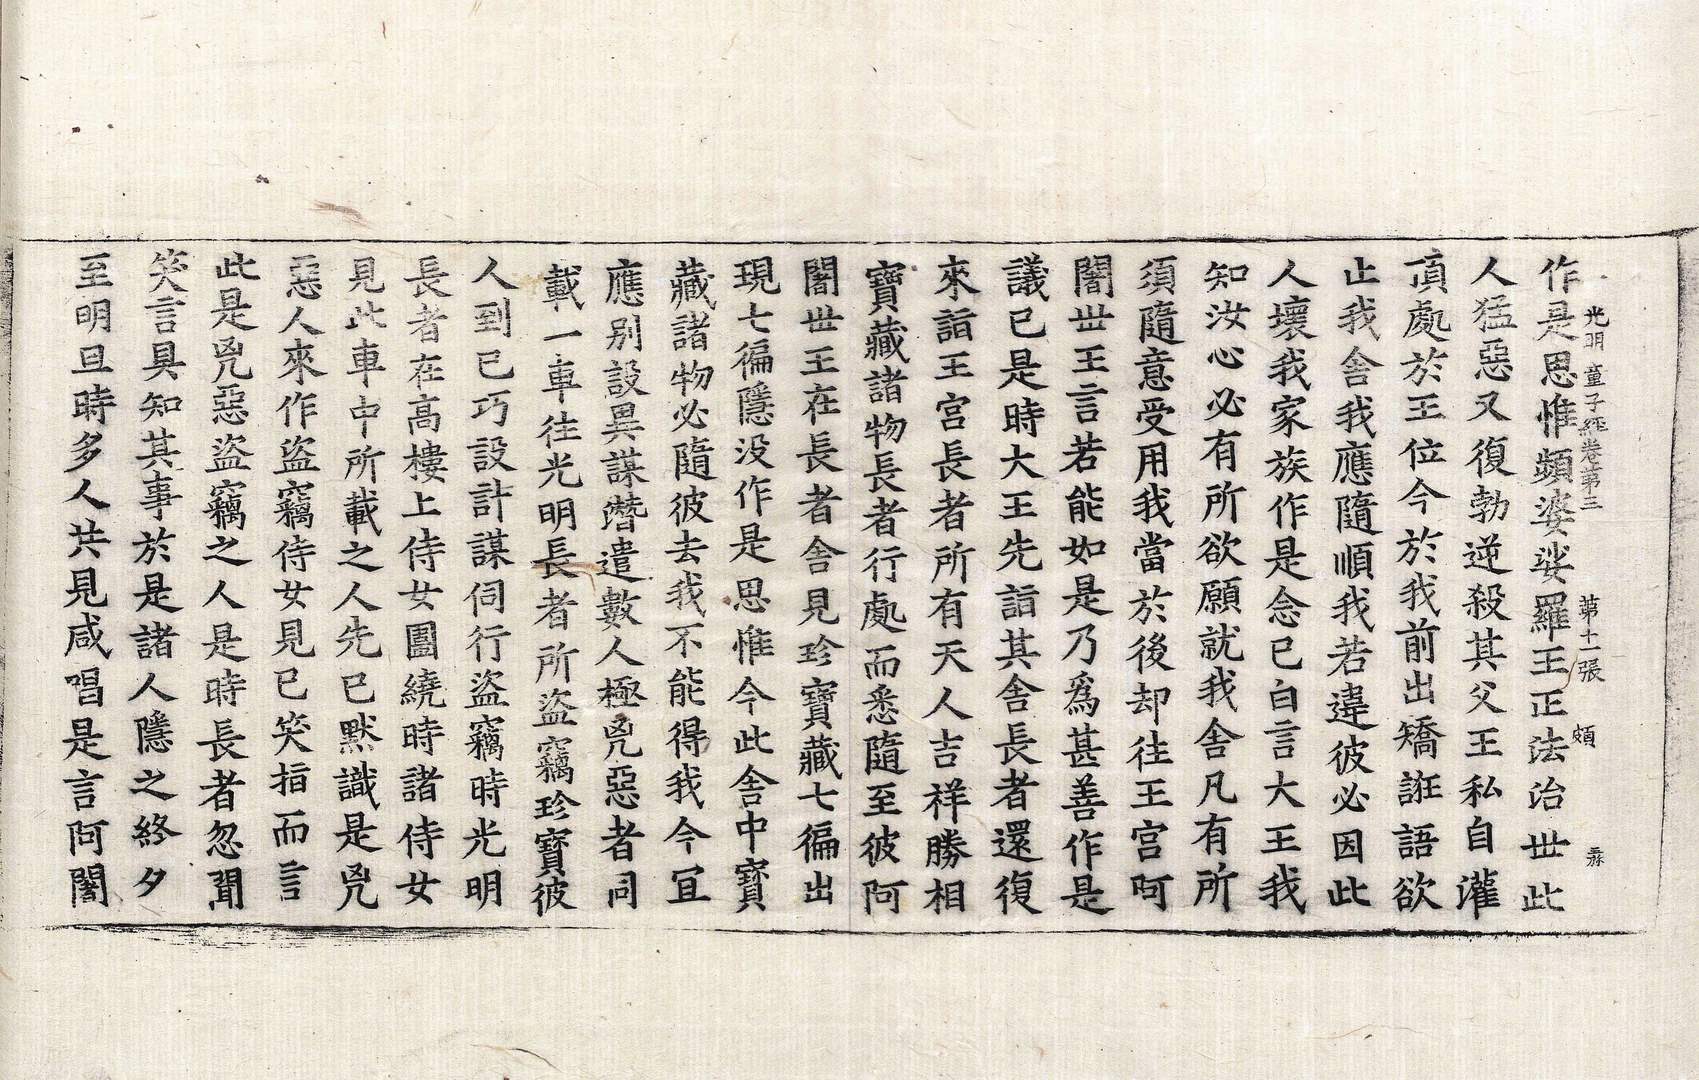 作是思惟頻婆娑羅王正法治世此
光明童子經卷第三 第十一張 頗
人猛惡又復勃逆殺其父王私自灌
頂處於王位今於我前出矯誑語欲
止我舍我應隨順我若違彼必因此
人壞我家族作是念已白言大王我
知汝心必有所欲願就我舍凡有所
須隨意受用我當於後却往王宮阿
闍世王言若能如是乃爲甚善作是
議已是時大王先詣其舍長者還復
來詣王宮長者所有天人吉祥勝相
寶藏諸物長者行處而悉隨至彼阿
闍世王在長者舍見珍寶藏七徧出
現七徧隱没作是思惟今此舍中寶
藏諸物必隨彼去我不能得我今宜
應别設異謀潛遣數人極兇惡者同
載一車往光明長者所盜竊珍寶彼
人到已巧設計謀伺行盜竊時光明
長者在高樓上侍女圍繞時諸侍女
見此車中所載之人先已默識是兇
惡人來作盜竊侍女見已笑指而言
此是兇惡盜竊之人是時長者忽聞
笑言具知其事於是諸人隱之終夕
至明旦時多人共見咸唱是言阿闍